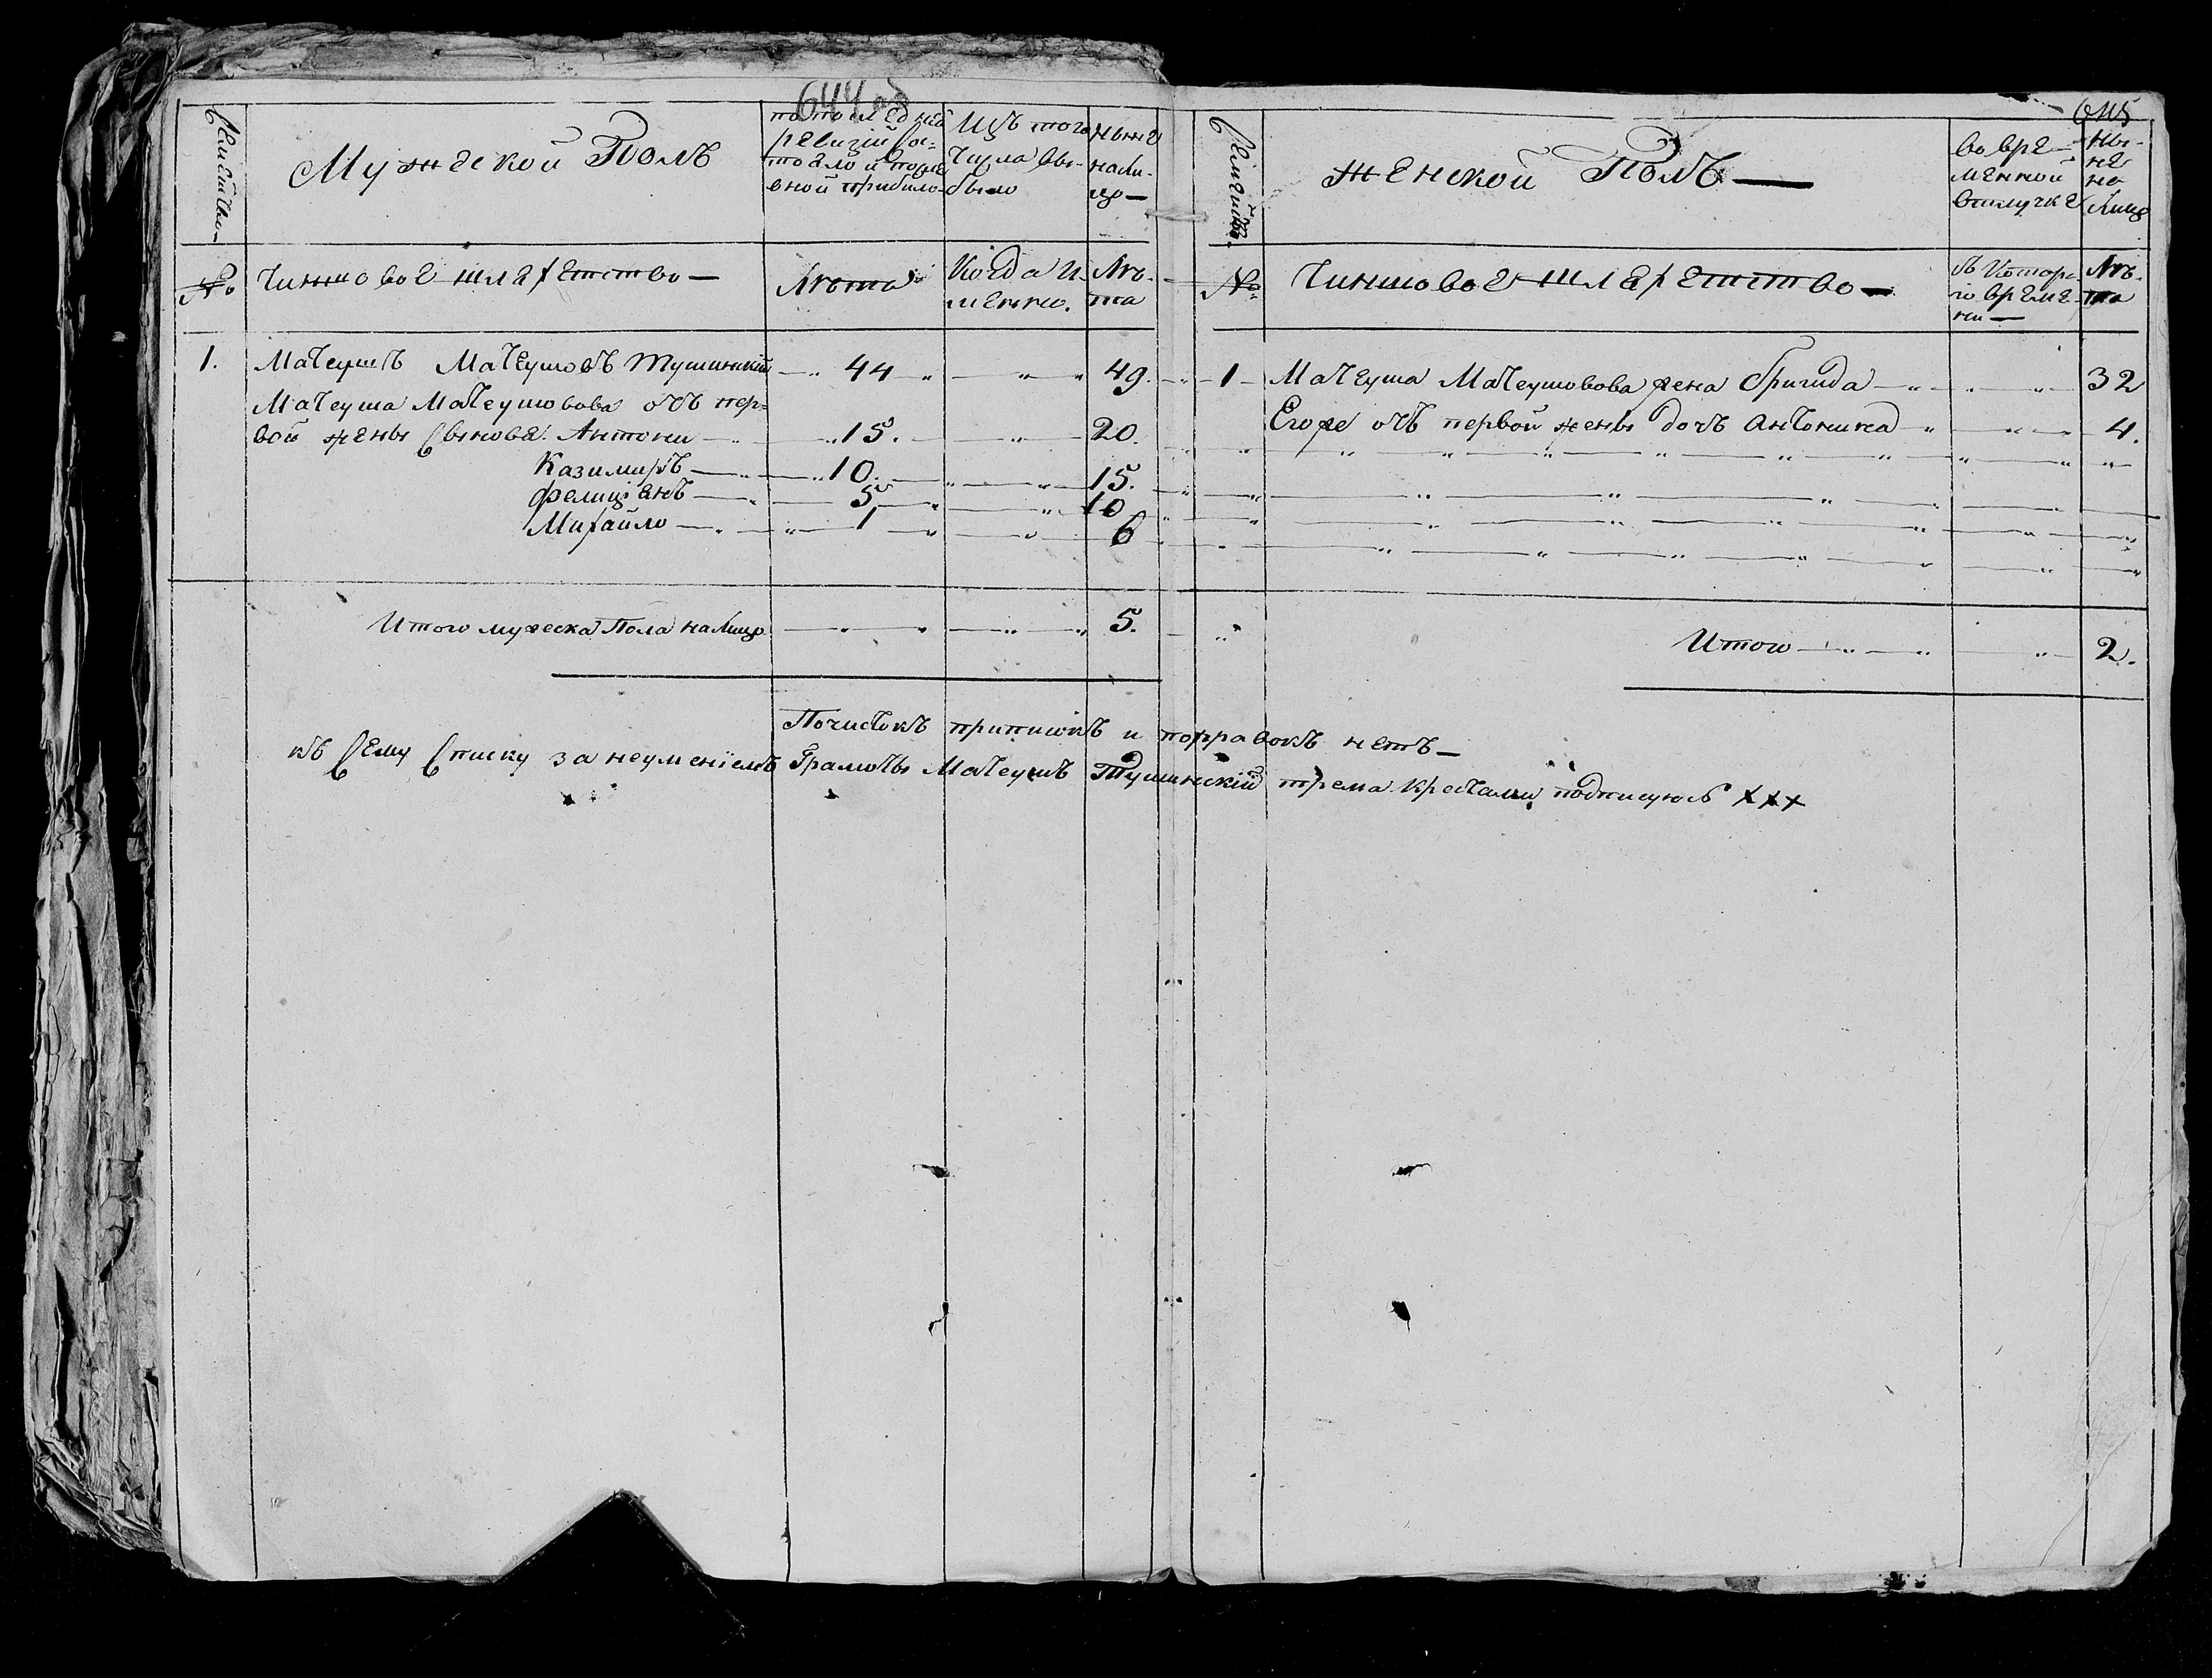 644 об
645
Семейство
Мужеской Полъ
по последней
ревизіи сос-
тояло и после
оной прибыло
Изъ того
числа вы-
было
ныне
нали-
цо
№
Чиншовое шляхетство
Лѣта
Когда и-
менно.
Лѣ-
та
1. Матеушъ Матеушовъ Тушинскій 44 49.
Матеуша Матеушовова отъ пер-
вой жены сыновя: Антони 15. 20.
Казимиръ 10. 15.
Фелиціянъ 5 10
Михайло 1 6
Итого мужеска Пола налицо 5.
Семейство
Женской Полъ
во вре-
менной
отлучке
Ны-
не
на
лицо
№
Чиншовое шляхетство
съ Котора-
го време-
ни
Лѣ-
та
1 Матеуша Матеушовова жена Бригида 32
Егоже отъ первой жены дочь Антонина 4.
Итого 2.
Почистокъ приписокъ и поправокъ нетъ
къ сему списку за неуменіемъ Грамоты Матеушъ Тушинскій трема Крестами подписуюсь ххх